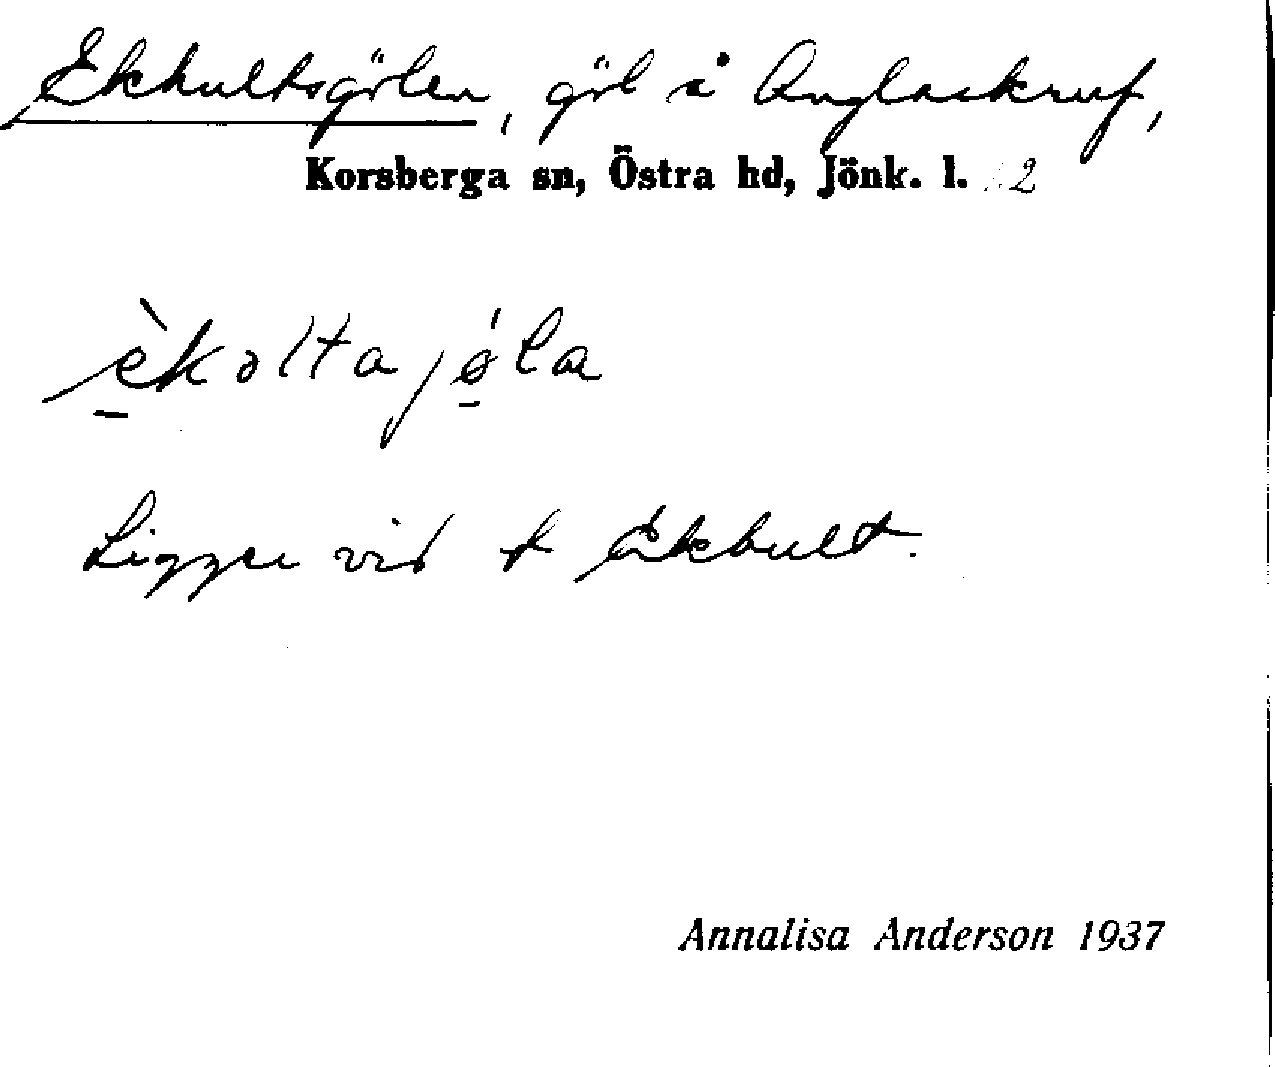 Ekhultsgölen, göl å Anglaskruf,
Korsberga sn, Östra hd, Jönk. l. 2
èkoltajø̀la
Ligger vid t Ekhult.
Annalisa Anderson 1937